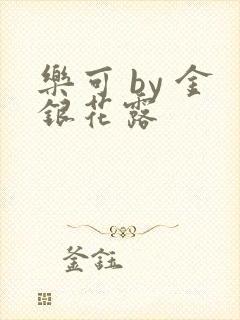 樂可 by 金
銀花露
釜鈺